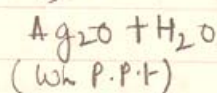 Ag₂O + H₂O
(Wh P.P.t)